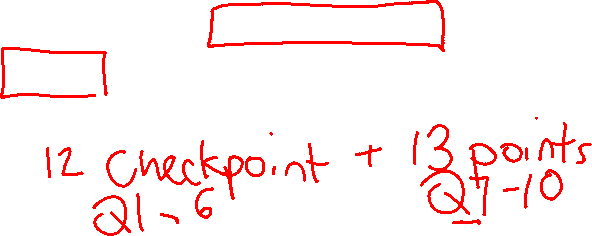 12 checkpoint + 13 points
Q1-6 Q7-10